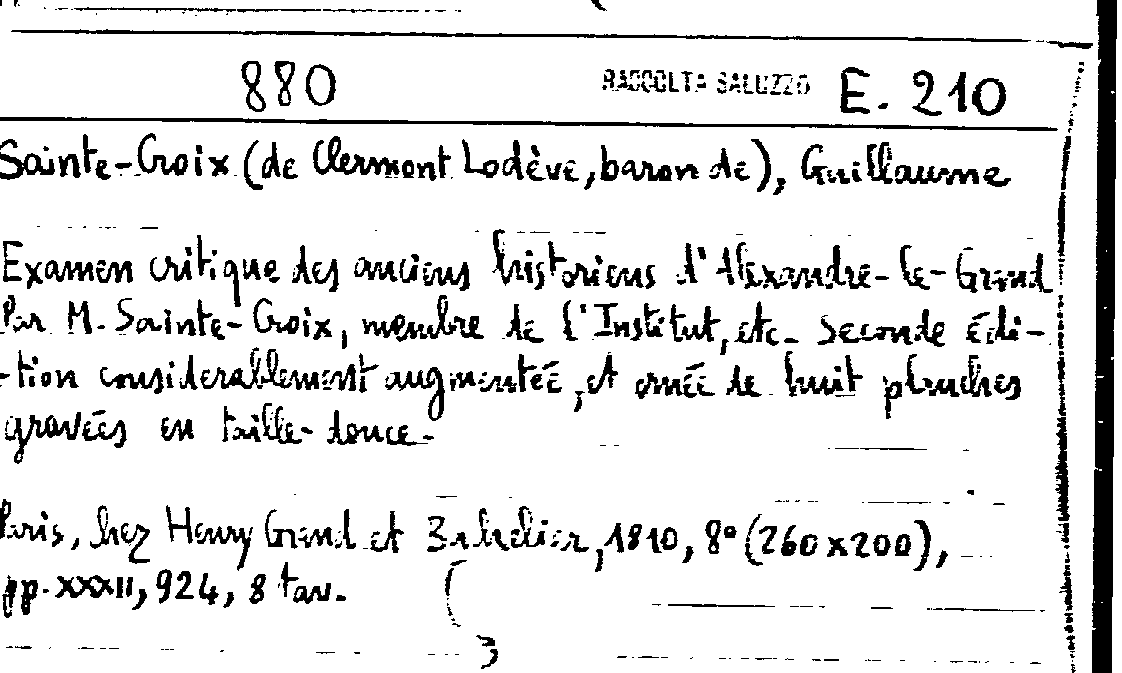 880 RACCOLTA SALUZZO E. 210
Sainte-Croix (de Clermont Lodève, baron de), Guillaume
Examen critique des anciens historiens d'Alexandre-le-Grand
Par M. Sainte-Croix, membre de l'Institut, etc. Seconde édi-
-tion considerablement augmentée, et ornée de huit planches
gravées en taille-douce.
Paris, chez Henry Grand et Bachelier, 1810, 8° (260x200),
pp. XXXII, 924, 8 tav.